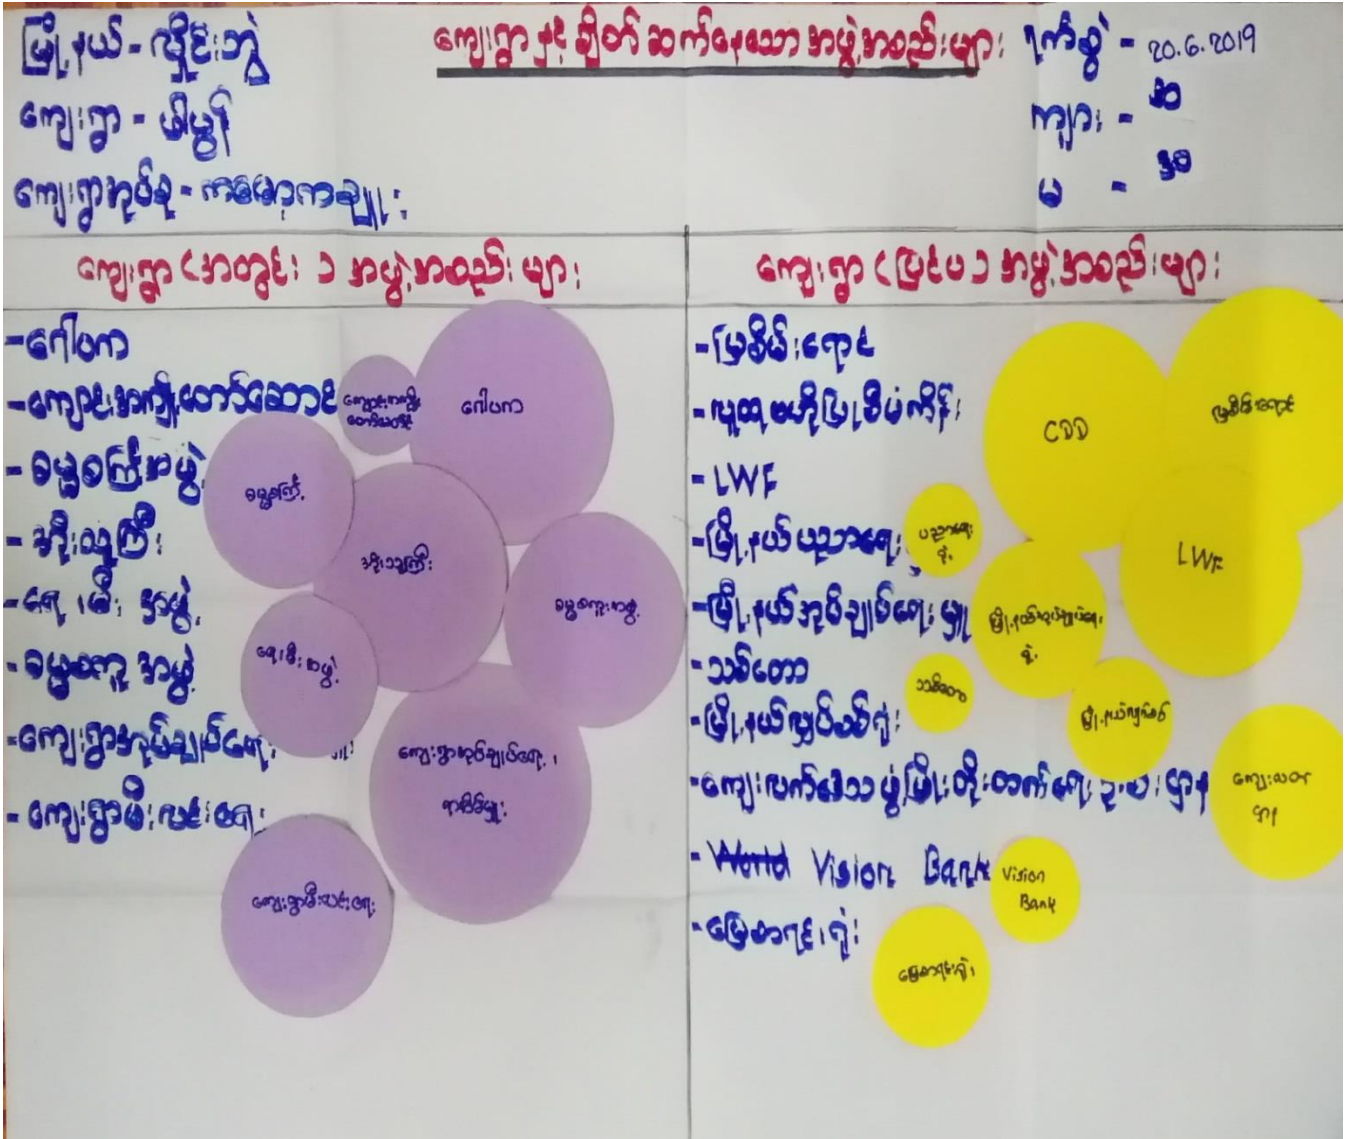 မြို့နယ် - လှိုင်းဘွဲ
ကျေးရွာ -
ကျေးရွာအုပ်စု -
ကျေးရွာနှင့် ချိတ်ဆက်နေသော အဖွဲ့အစည်းများ
ရက်စွဲ - 20.6.2019
ကျား -
မ - ၃၀
ကျေးရွာ (အတွင်း) အဖွဲ့အစည်းများ
- ဂေါပက
- ကျောင်းအကျိုးတော်ဆောင်
- ဓမ္မစကြာအဖွဲ့
- အိုးသူကြီး
- ရေ၊မီး အဖွဲ့
- အဖွဲ့
- ကျေးရွာအုပ်ချုပ်ရေး
- ကျေးရွာမီးလင်းရေး
ကျောင်းအကျိုး
တော်ဆောင်
ဂေါပက
အိုးသူကြီး
ရေ၊မီးအဖွဲ့
ကျေးရွာအုပ်ချုပ်ရေး
ရာအိမ်မှူး
ကျေးရွာမီးလင်းရေး
ကျေးရွာ (ပြင်ပ) အဖွဲ့အစည်းများ
- မြစိမ်းရောင်
- လူထုဗဟိုပြုစီမံကိန်း
- LWF
- မြို့နယ်ပညာရေး
- မြို့နယ်အုပ်ချုပ်ရေးမှူ
- သစ်တော
- မြို့နယ်လျှပ်စစ်ရုံး
- ကျေးလက်ဒေသ ဖွံ့ဖြိုးတိုးတက်ရေး ဦးစီးဌာန
- World Vision Bank
- မြေစာရင်းရုံး
CDD
မြစိမ်းရောင်
ပညာရေး
ရုံး
LWF
မြို့နယ်အုပ်ချုပ်ရေး
ရုံး
သစ်တော
မြို့နယ်လျှပ်စစ်
ကျေးလက်
ဌာန
Vision
Bank
မြေစာရင်းရုံး